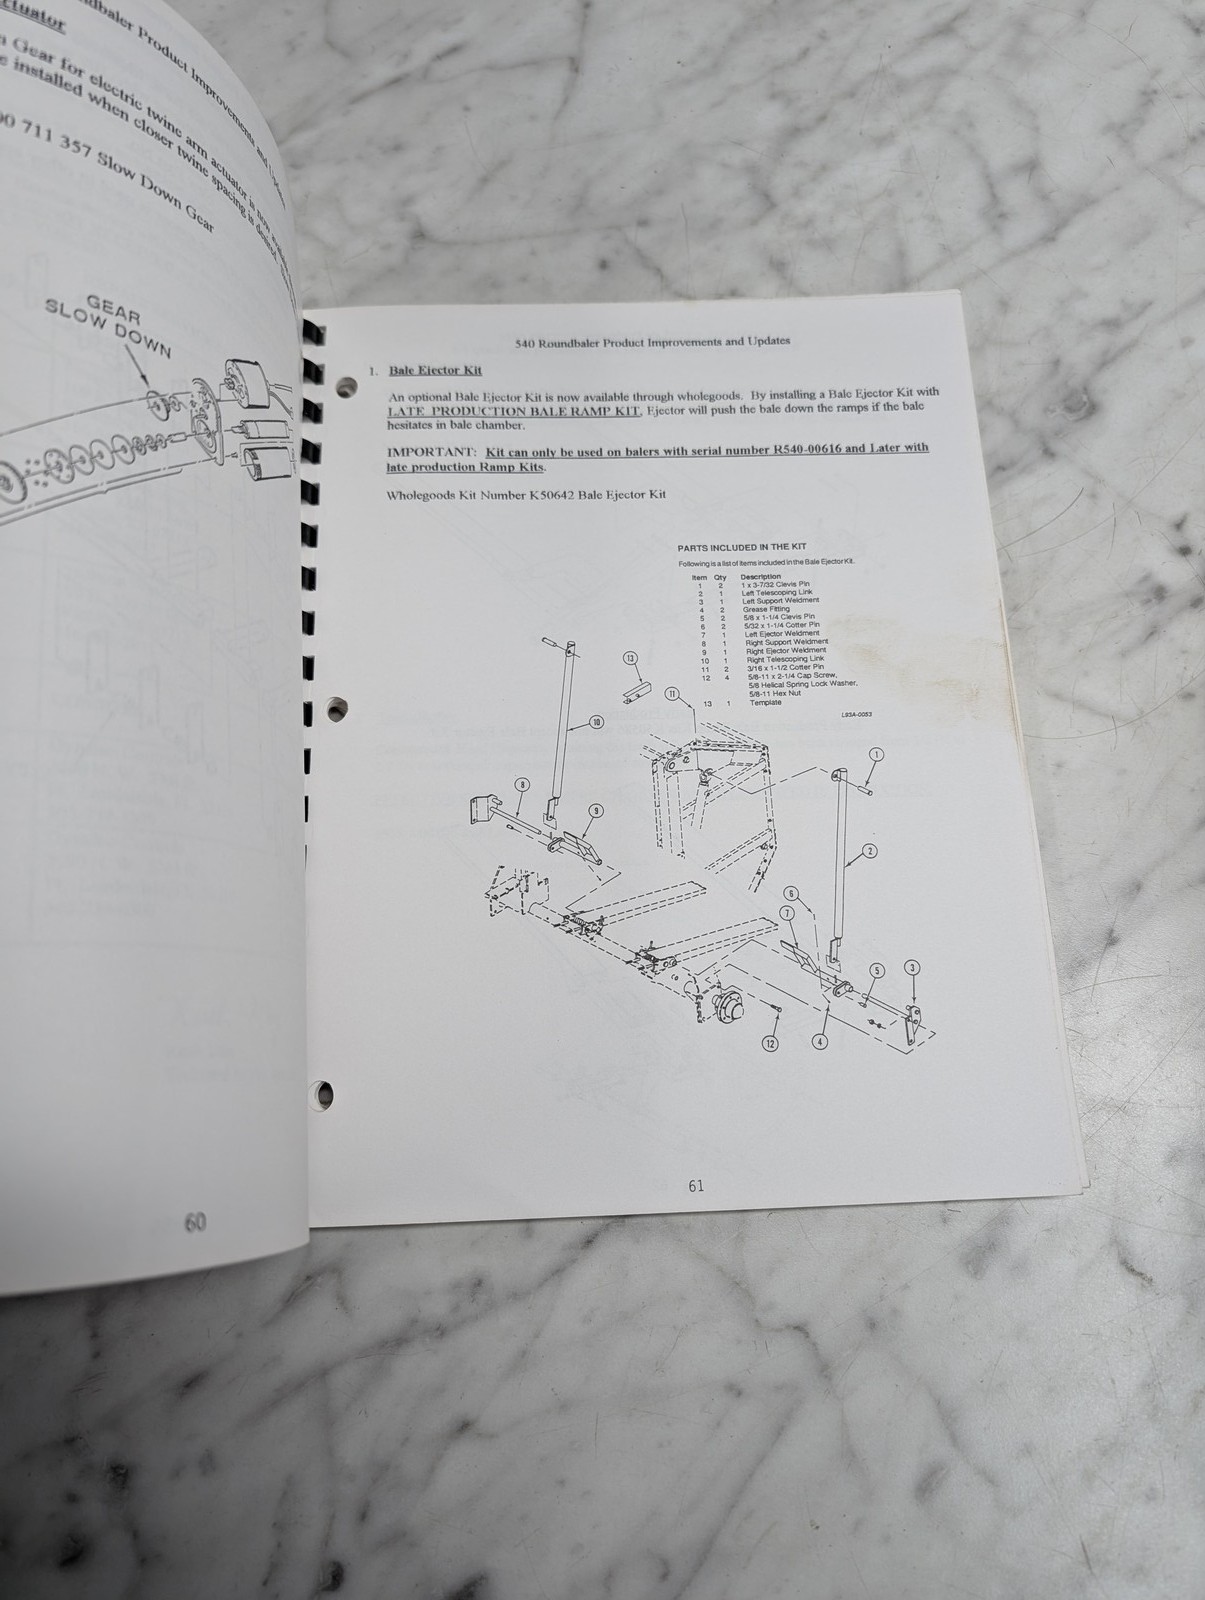 ctuator
dbaler Product Improvements and
Gear for electric twine arm actuator is now
installed when closer twine spacing is desired.
711 357 Slow Down Gear
GEAR
SLOW DOWN
60
540 Roundbaler Product Improvements and Updates
1. Bale Ejector Kit
An optional Bale Ejector Kit is now available through wholegoods. By installing a Bale Ejector Kit with
LATE PRODUCTION BALE RAMP KIT, Ejector will push the bale down the ramps if the bale
hesitates in bale chamber.
IMPORTANT: Kit can only be used on balers with serial number R540-00616 and Later with
late production Ramp Kits.
Wholegoods Kit Number K50642 Bale Ejector Kit
PARTS INCLUDED IN THE KIT
Following is a list of items included in the Bale Ejector Kit.
Item Qty Description
1 2 1 x 3-7/32 Clevis Pin
2 1 Left Telescoping Link
3 1 Left Support Weldment
4 2 Grease Fitting
5 2 5/8 x 1-1/4 Clevis Pin
6 2 5/32 x 1-1/4 Cotter Pin
7 1 Left Ejector Weldment
8 1 Right Support Weldment
9 1 Right Ejector Weldment
10 1 Right Telescoping Link
11 2 3/16 x 1-1/2 Cotter Pin
12 4 5/8-11 x 2-1/4 Cap Screw,
5/8 Helical Spring Lock Washer,
5/8-11 Hex Nut
13 1 Template
L93A-0053
13
11
10
1
8
9
2
6
7
5
3
12
4
61